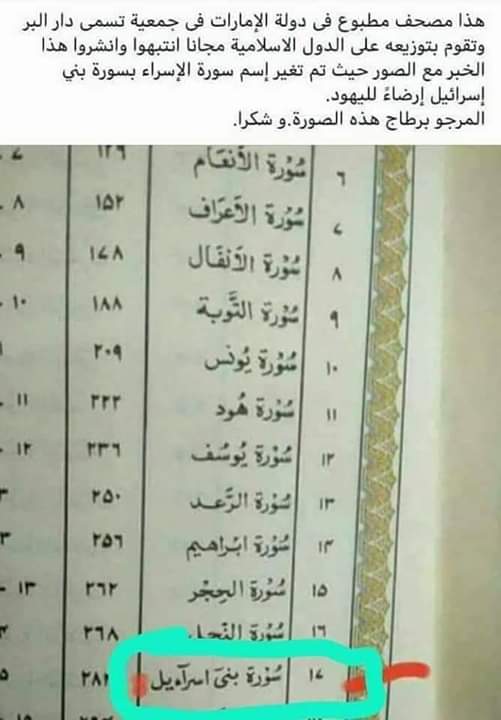 هذا مصحف مطبوع فى دولة الإمارات فى جمعية تسمى دار البر
وتقوم بتوزيعه على الدول الاسلامية مجانا انتبهوا وانشروا هذا
الخبر مع الصور حيث تم تغير إسم سورة الإسراء بسورة بني
إسرائيل إرضاءً لليهود.
المرجو برطاج هذه الصورة.و شكرا.
٦ سُوْرَة الأنعَام ١٢٩
٧ سُوْرَة الأعرَاف ١٥٢ ٨
٨ سُوْرَة الأنفَال ١٧٨ ٩
٩ سُوْرَة التَّوبَة ١٨٨ ١٠
١٠ سُوْرَة يُونس ٢٠٩
١١ سُوْرَة هُود ٢٢٢ ١١
١٢ سُوْرَة يُوسُف ٢٣٦ ١٢
١٣ سُوْرَة الرَّعد ٢٥٠
١٤ سُوْرَة ابراهيم ٢٥٦
١٥ سُوْرَة الحِجْر ٢٦٢ ١٣
١٦ سُوْرَة النّحل ٢٦٨
١٧ سُوْرَة بنیٓ اسرآءيل